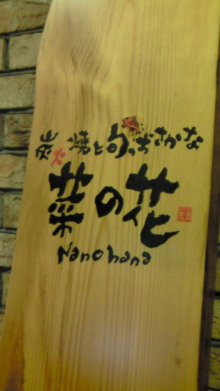 炭火焼と旬のおさかな
菜の花
Nanohana